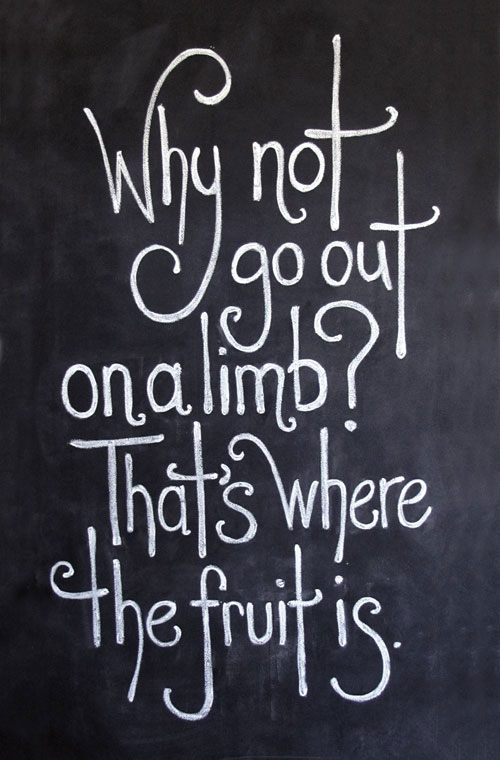 Why not
go out
on a limb?
That's where
the fruit is.